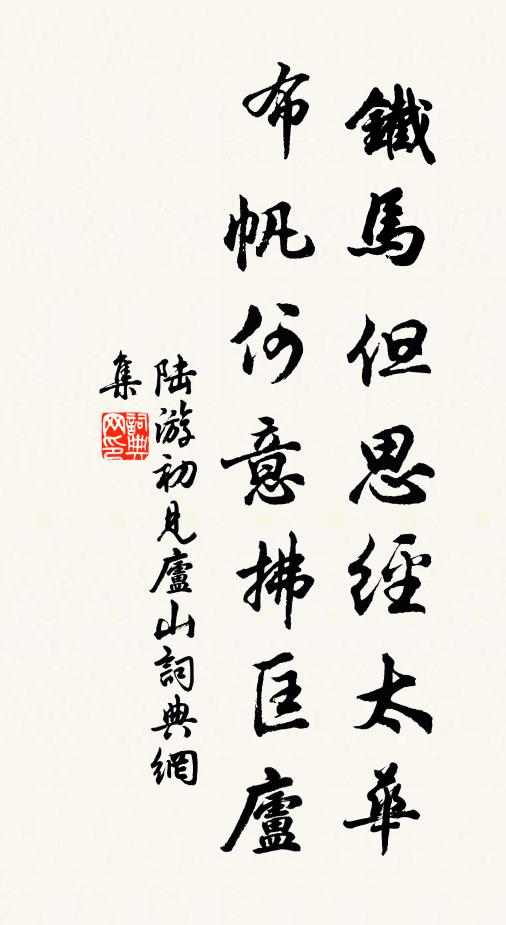 鐵馬但思經太華
布帆何意拂匡廬
陸游初見廬山詞典網
集
詞典
网印